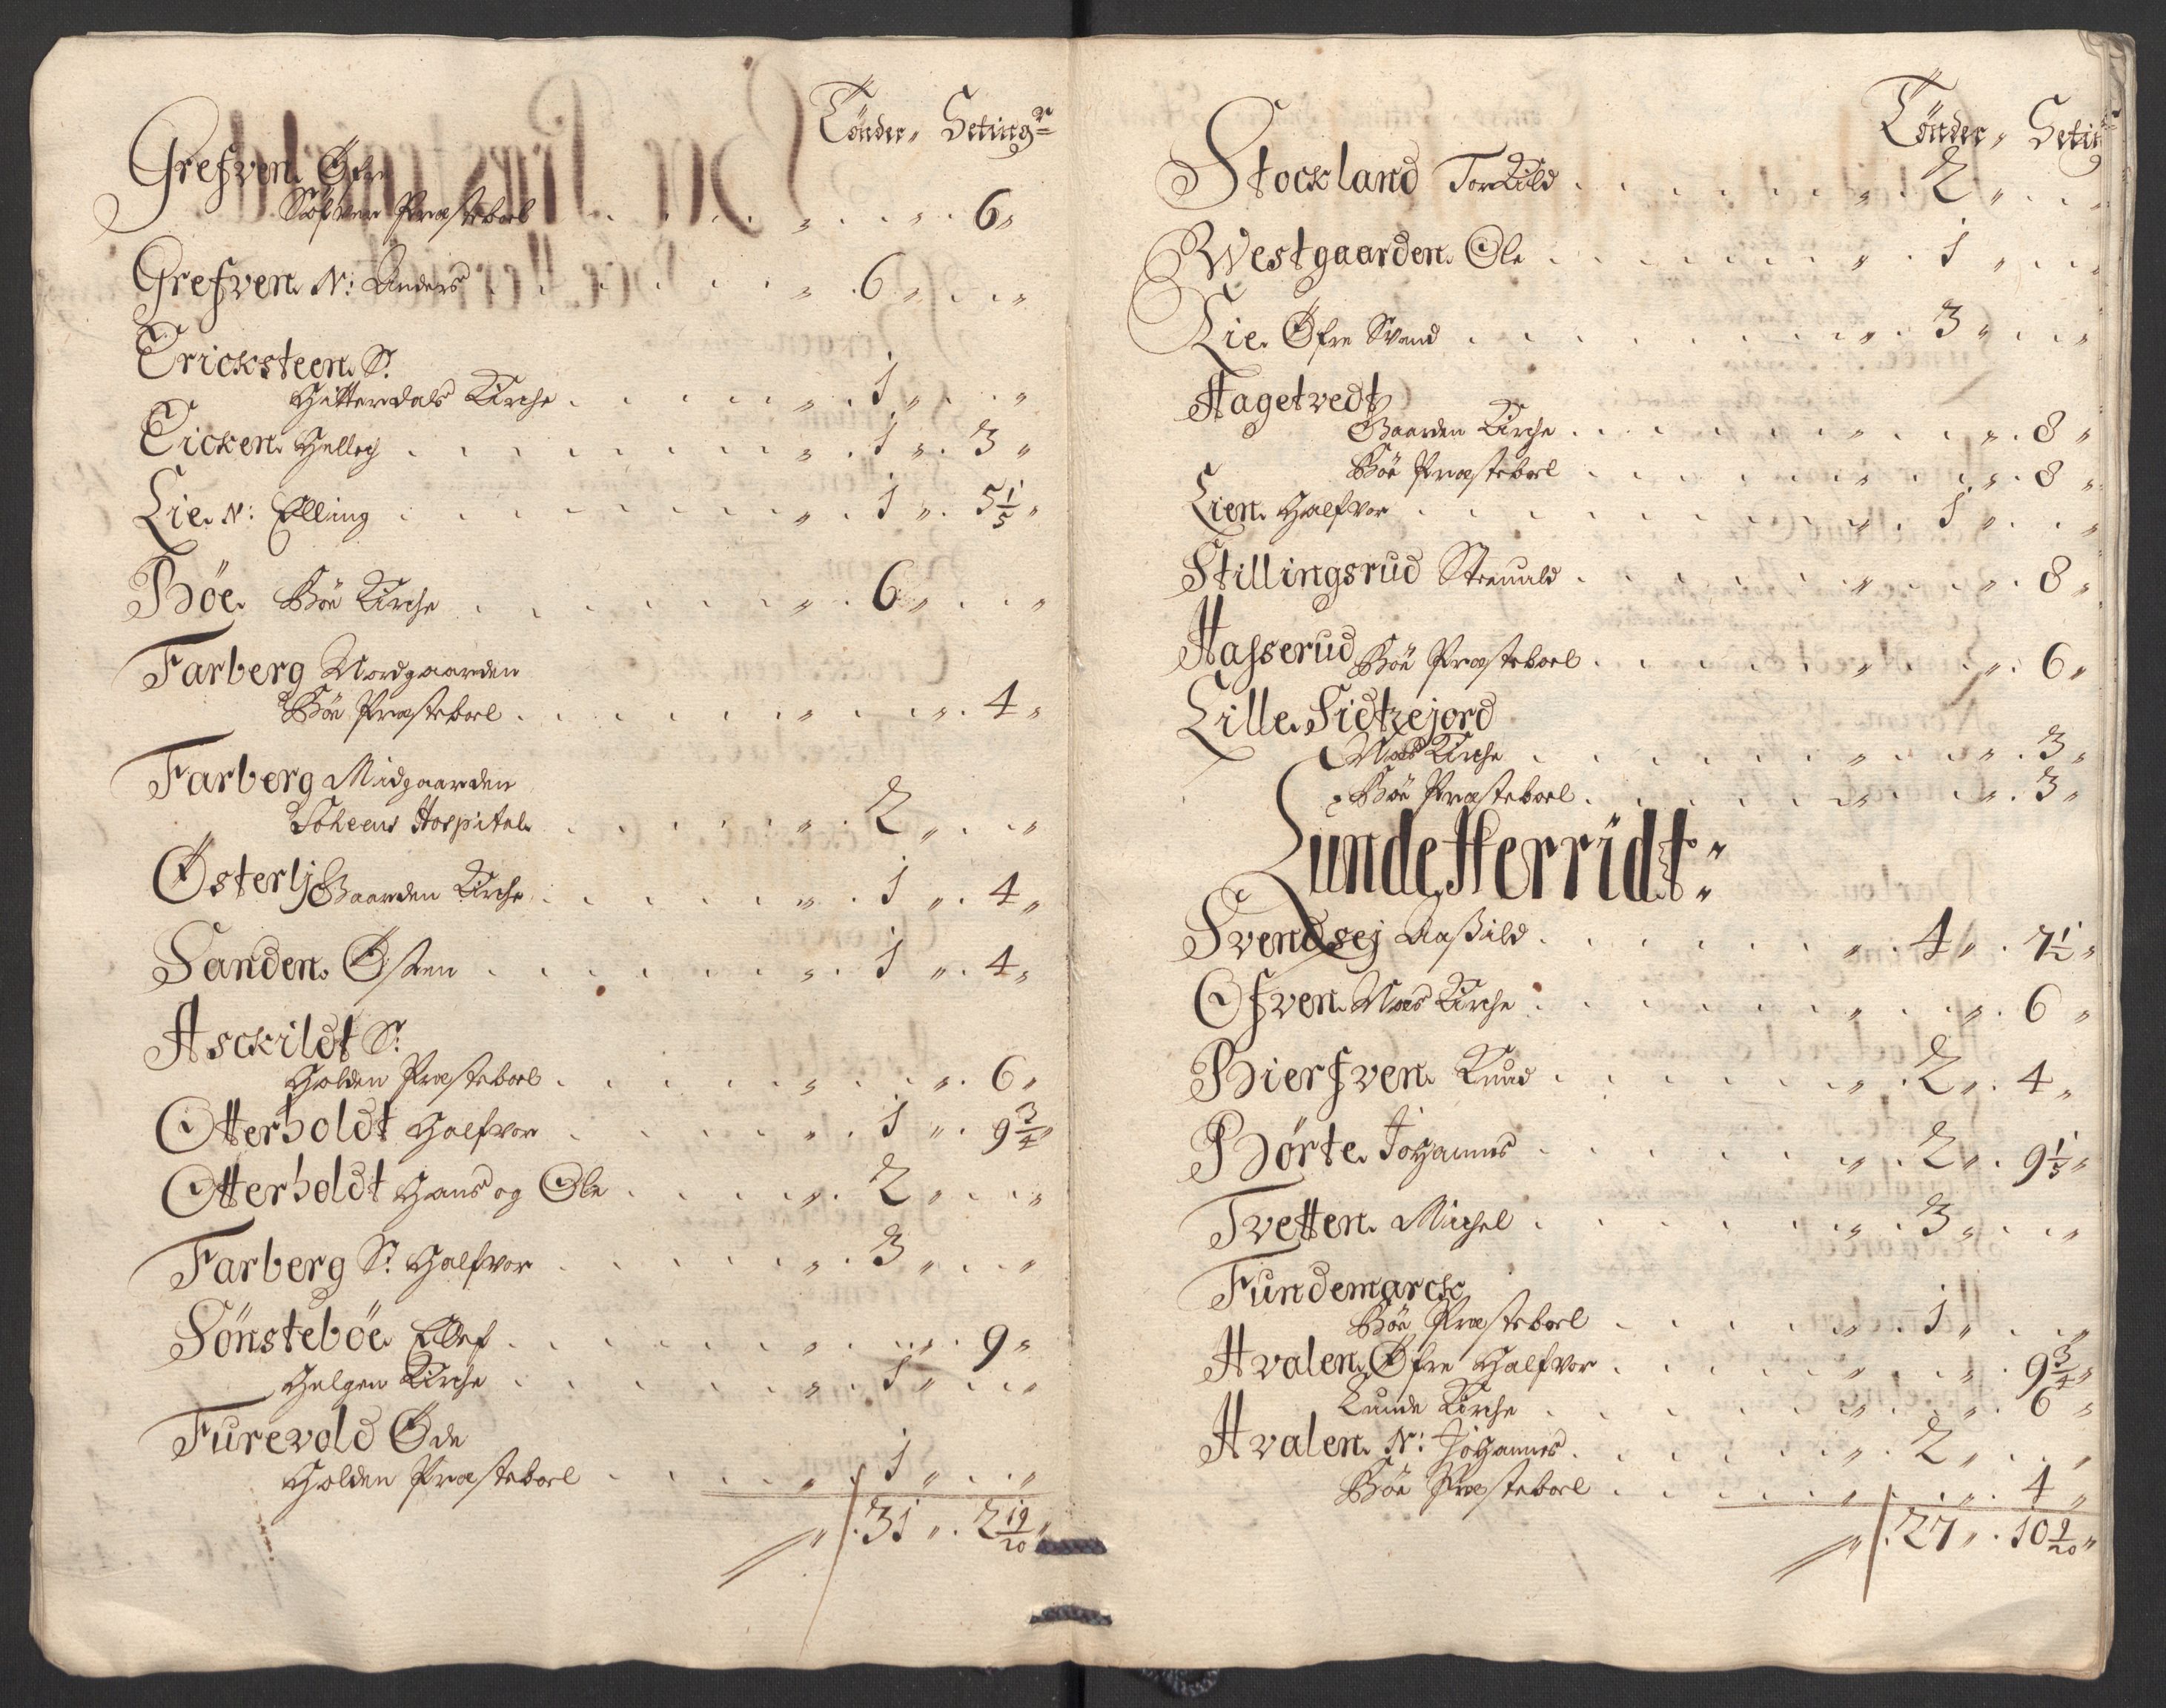 Tönder „ Setingr
Grefven Øfre
Böe Præsteboel . . . „ . . „ . 6 „
Grefven N: Anders . . . „ . 6 „ . . „
Ericksteen S:
Hitterdals Kirche . . . „ . 1 „ . . „
Eicken Hellej . . . „ . 1 „ . 3 „
Lie N: Elling . . . „ . 1 „ . 5 1/5 „
Böe Böe Kirche . . . „ . 6 „ . . „
Farberg Nordgaarden
Böe Præsteboel . . . „ . . „ . 4 „
Farberg Midgaarden
Scheens Hospital . . . „ . 2 „ . . „
Østerlj Gaarden Kirche . . . „ . 1 „ . 4 „
Sanden Østen . . . „ . 1 „ . 4 „
Asckildt S:
Holden Præsteboel . . . „ . . „ . 6 „
Otterholdt Halfvor . . . „ . 1 „ . 9 3/4 „
Otterholdt Hans og Ole . . . „ . 2 „ . . „
Farberg S: Halfvor . . . „ . 3 „ . . „
Sönsteböe Ellef . . . „ . . „ . 9 „
Helgen Kirche . . . „ . 1 „ . . „
Furevold Øde
Holden Præsteboel . . . „ . 1 „ . . „
„ . 31 „ . 2 19/20 „
Tönder „ Seting
Stockland Torkild . . . „ . 2 „ . . „
Westgaarden Ole . . . „ . 1 „ . . „
Lie Øfre Svend . . . „ . 3 „ . . „
Hagetvedt
Gaarden Kirche . . . „ . . „ . 8 „
Böe Præsteboel . . . „ . . „ . 8 „
Lien Halfvor . . . „ . 1 „ . . „
Stillingsrud Steenuld . . . „ . . „ . 8 „
Hasserud Böe Præsteboel . . . „ . . „ . 6 „
Lille Sidtzejord
Næs Kirche . . . „ . . „ . 3 „
Böe Præsteboel . . . „ . . „ . 3 „
Lunde Herridt:
Svendsej Aaßild . . . „ . 4 „ . 7 1/2 „
Ofven Næs Kirche . . . „ . . „ . 6 „
Bierfven Knud . . . „ . 2 „ . 4 „
Børte Johannes . . . „ . 2 „ . 9 1/5 „
Tvetten Michel . . . „ . 3 „ . . „
Fundemarck
Böe Præsteboel . . . „ . 1 „ . . „
Hvalen Øfre Halfvor . . . „ . . „ . 9 3/4 „
Lunde Kirche . . . „ . . „ . 6 „
Hvalen N: Johannes . . . „ . 2 „ . . „
Böe Præsteboel . . . „ . . „ . 4 „
„ . 27 „ . 10 9/20 „